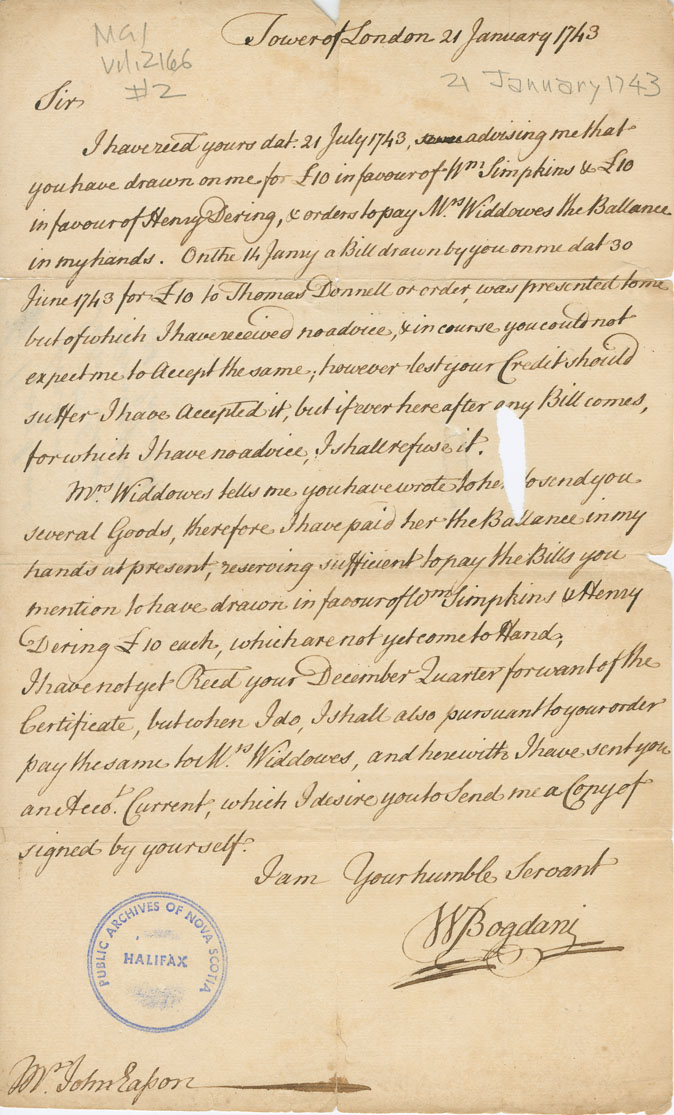 Tower of London 21 January 1743
MG1
Vol. 2166
#2
21 January 1743
Sir
I have recd yours dat. 21 July 1743, advising me that
you have drawn on me for £10 in favour of Wm Simpkins & £10
in favour of Henry Dering, & orders to pay Mrs Widdowes the Ballance
in my hands. On the 14 Janry a Bill drawn by you on me dat 30
June 1743 for £10 to Thomas Donnell or order, was presented to me
but of which I have received no advice, & in course you could not
expect me to Accept the same; however lest your Credit should
suffer I have Accepted it, but if ever hereafter any Bill comes,
for which I have no advice, I shall refuse it.
Mrs Widdowes tells me you have wrote to her to send you
several Goods, therefore I have paid her the Ballance in my
hands at present, reserving sufficient to pay the Bills you
mention to have drawn in favour of Wm Simpkins & Henry
Dering £10 each, which are not yet come to Hand;
I have not yet Recd your December Quarter for want of the
Certificate, but when I do, I shall also pursuant to your order
pay the same to Mrs Widdowes, and herewith I have sent you
an Acco.t Current, which I desire you to Send me a Copy of
signed by yourself.
I am Your humble Servant
W Bogdani
PUBLIC ARCHIVES OF NOVA SCOTIA
HALIFAX
Mr John Eason